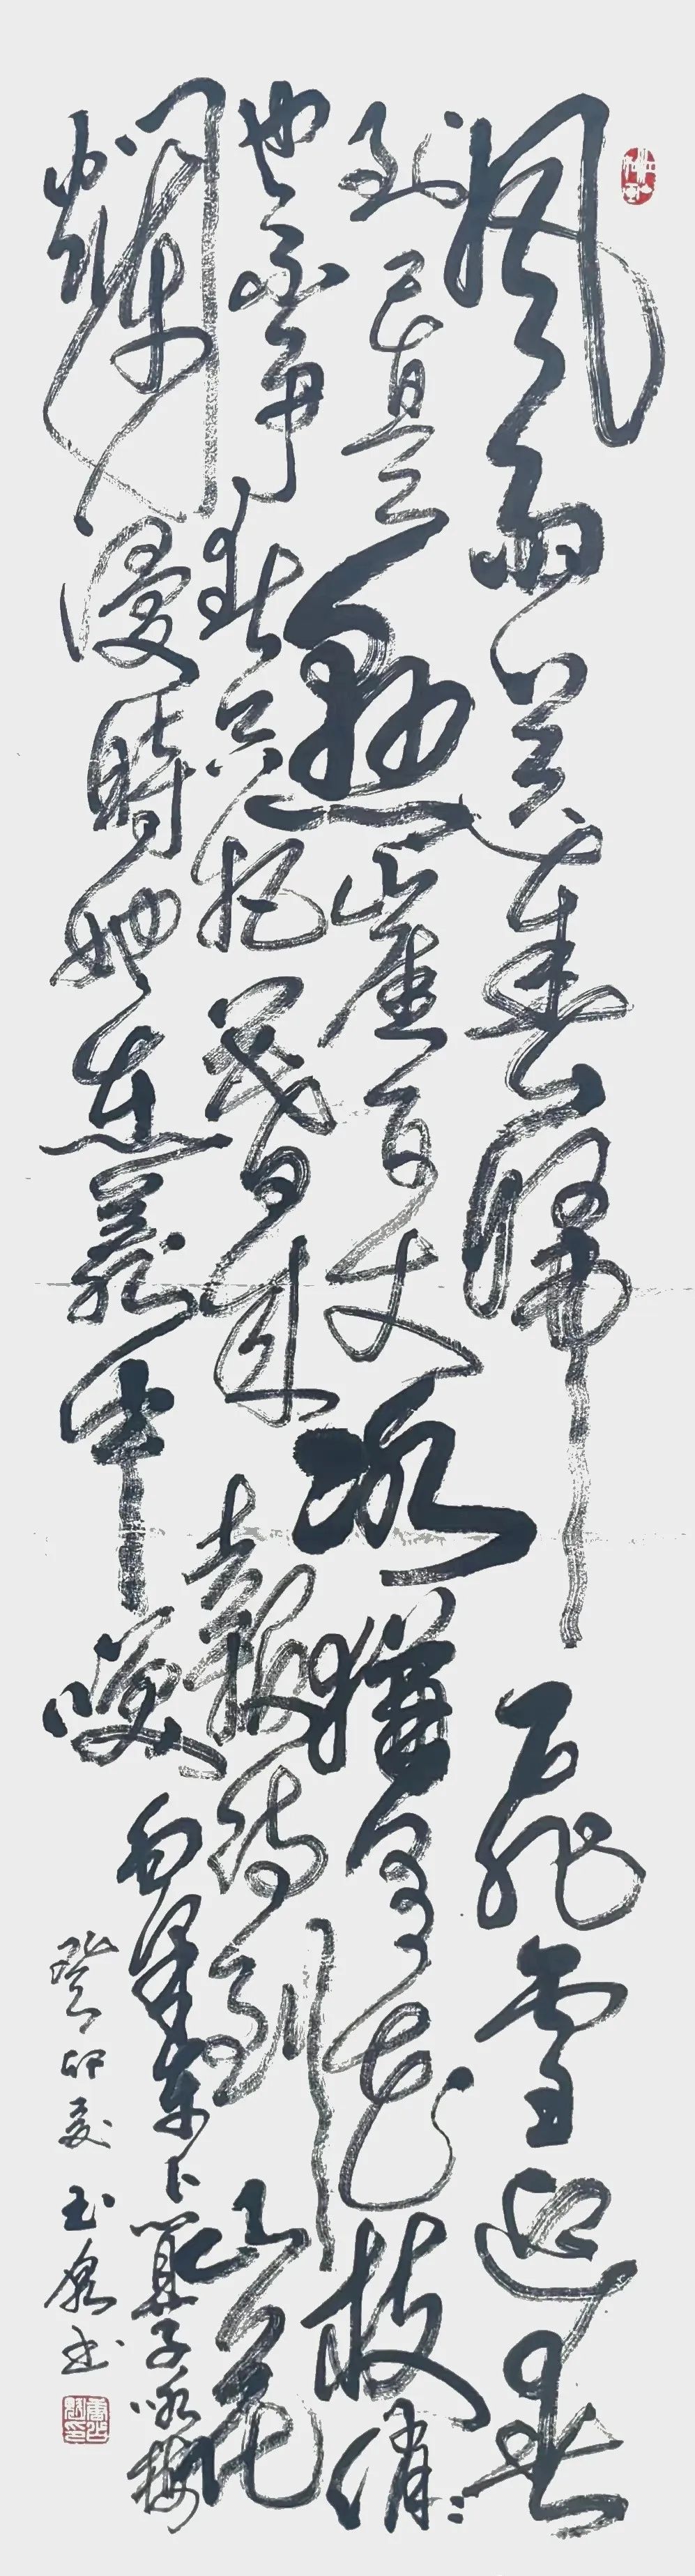 风雨送春歸飛雪迎春
到已是悬崖百丈冰猶有花枝俏:
也不争春只把春来報待到山花
爛漫時她在叢中笑
毛澤東卜算子咏梅
癸卯夏玉泉书